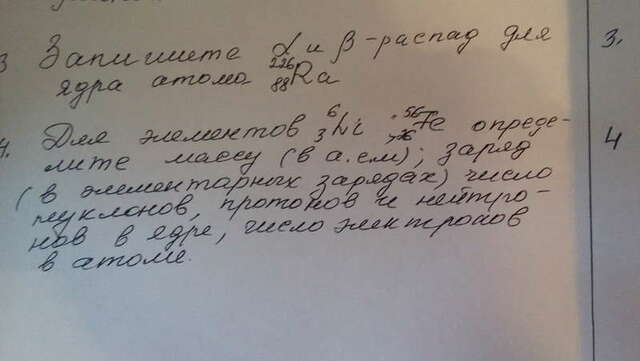 3 Запишите α и β-распад для
ядра атома ²²⁶₈₈Ra
4. Для элементов ⁶₃Li ; ⁵⁶₂₆Fe опреде-
лите массу (в а.ем); заряд
(в элементарных зарядах) число
нуклонов, протонов и нейтро-
нов в ядре, число электронов
в атоме.
3.
4